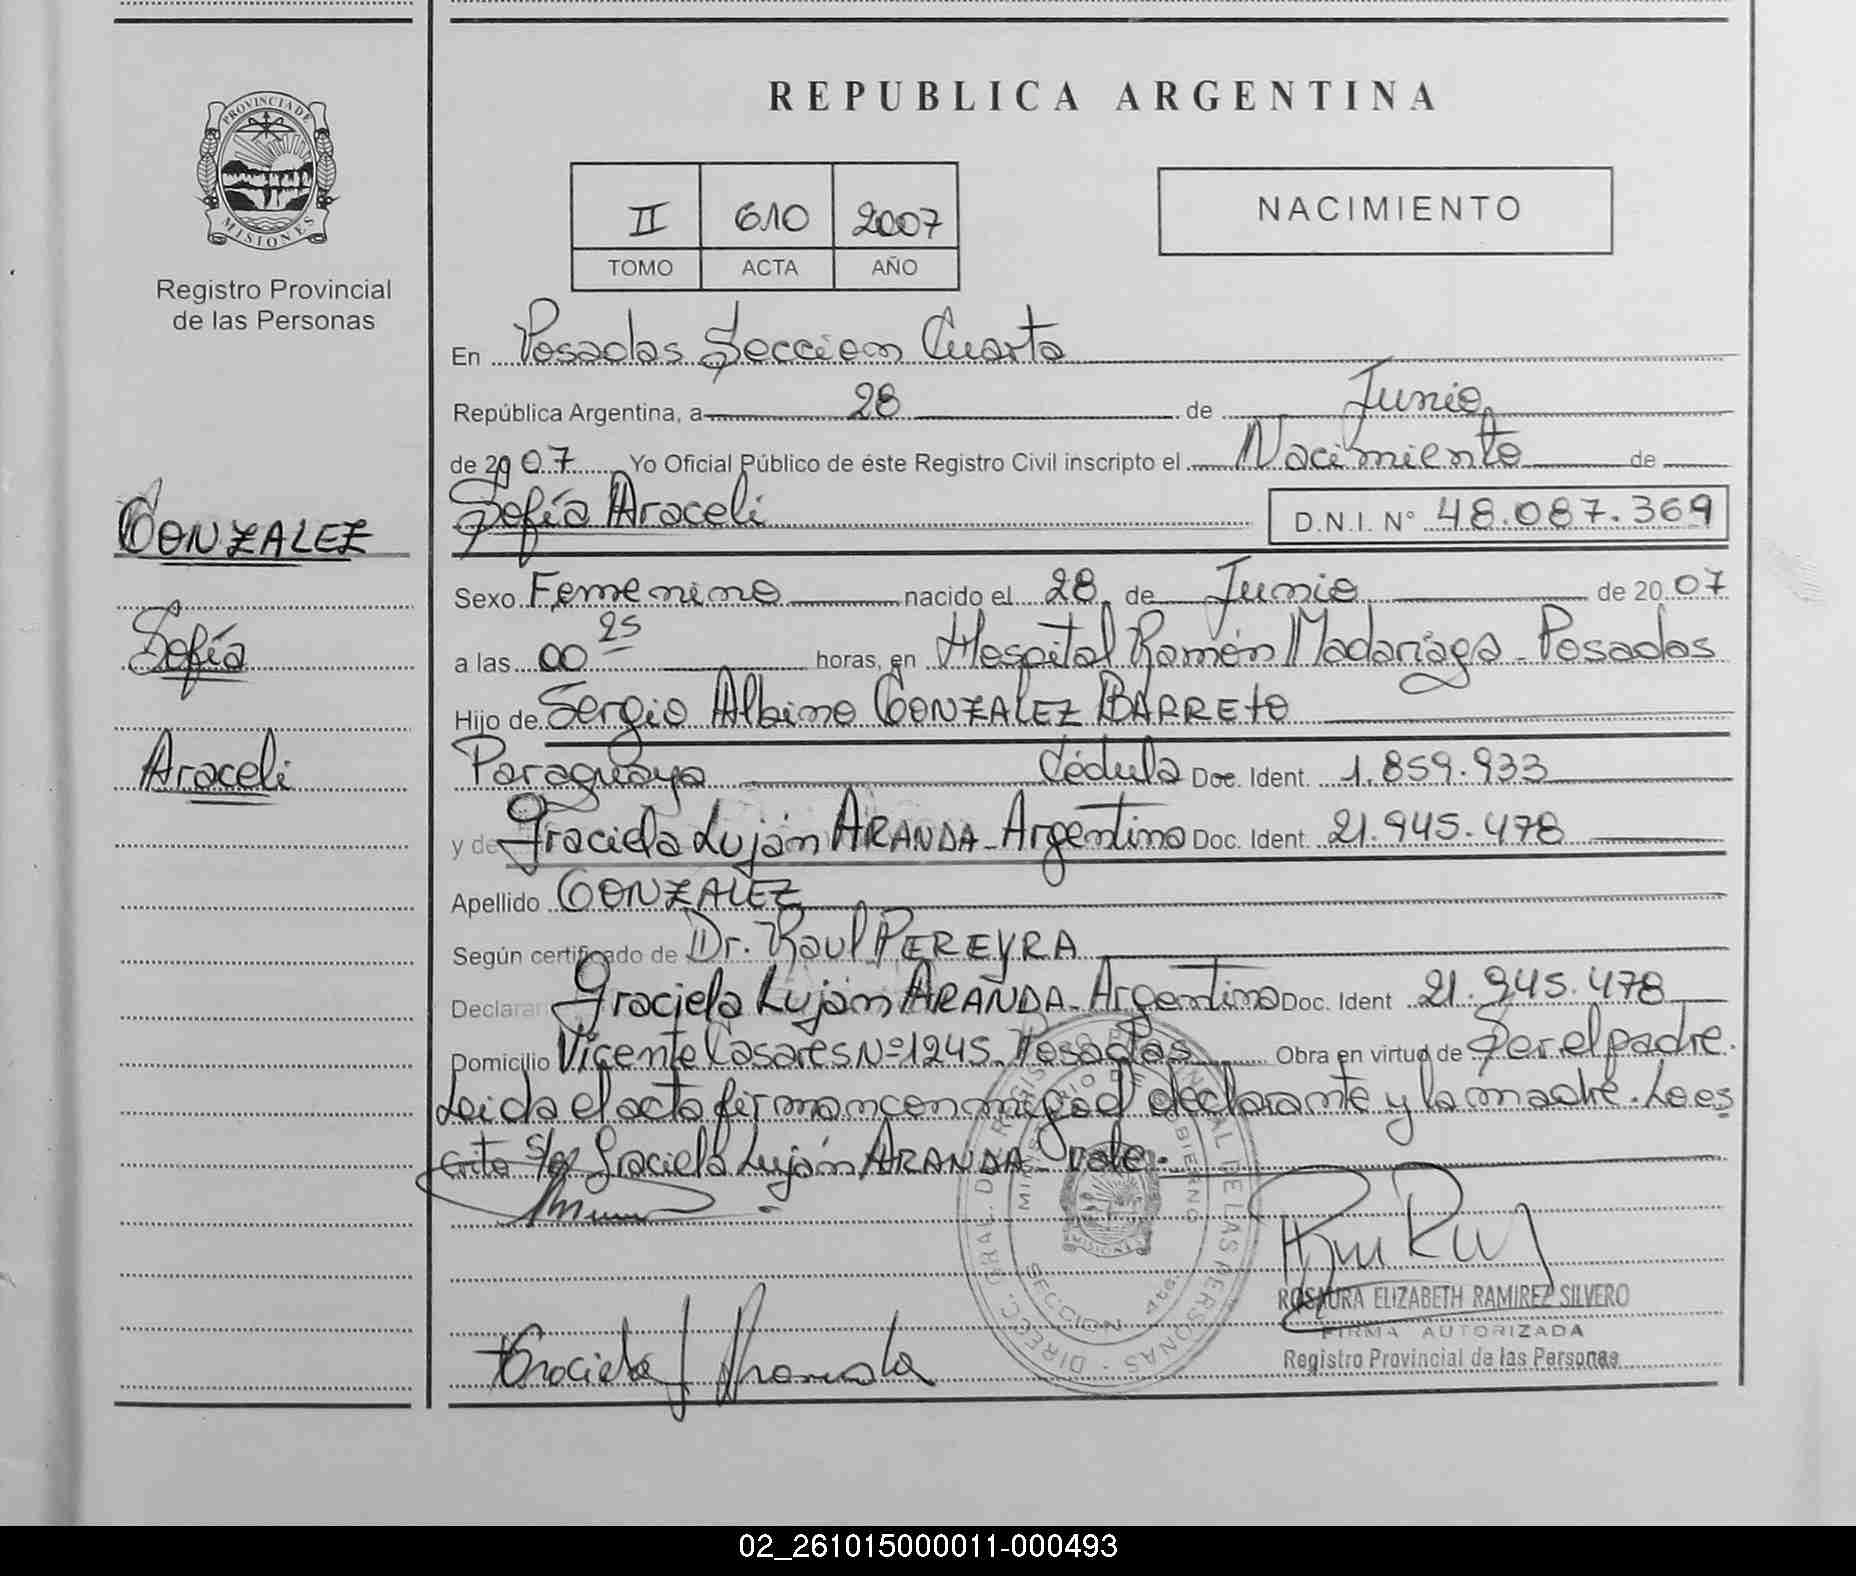 PROVINCIA DE
MISIONES
Registro Provincial
de las Personas
GONZALEZ
Sofía
Araceli
REPUBLICA ARGENTINA
II 610 2007
TOMO ACTA AÑO
NACIMIENTO
En Posadas Seccion Cuarta
República Argentina, a 28 de Junio
de 2007 Yo Oficial Público de éste Registro Civil inscripto el Nacimiento de
Sofía Araceli D.N.I. N° 48.087.369
Sexo Femenino nacido el 28 de Junio de 2007
a las 00 25 horas, en Hospital Ramón Madariaga - Posadas
Hijo de Sergio Albino GONZALEZ BARRETO
Paraguaya Cédula Doc. Ident. 1.859.933
y de Graciela Luján ARANDA - Argentina Doc. Ident. 21.945.478
Apellido GONZALEZ
Según certificado de Dr. Raul PEREYRA
Declaran Graciela Luján ARANDA - Argentina Doc. Ident 21.945.478
Domicilio Vicente Casares Nº 1245. Posadas Obra en virtud de Ser el padre.
Leida el acta firman conmigo el declarante y la madre. Lo es
crito s/r Graciela Luján ARANDA - vale.
DIRECC. GRAL. DE REGISTRO PROVINCIAL DE LAS PERSONAS
MINISTERIO DE GOBIERNO
SECCION 4ta.
MISIONES
ROSAURA ELIZABETH RAMIREZ SILVERO
FIRMA AUTORIZADA
Registro Provincial de las Personas
Graciela L Aranda
02_261015000011-000493